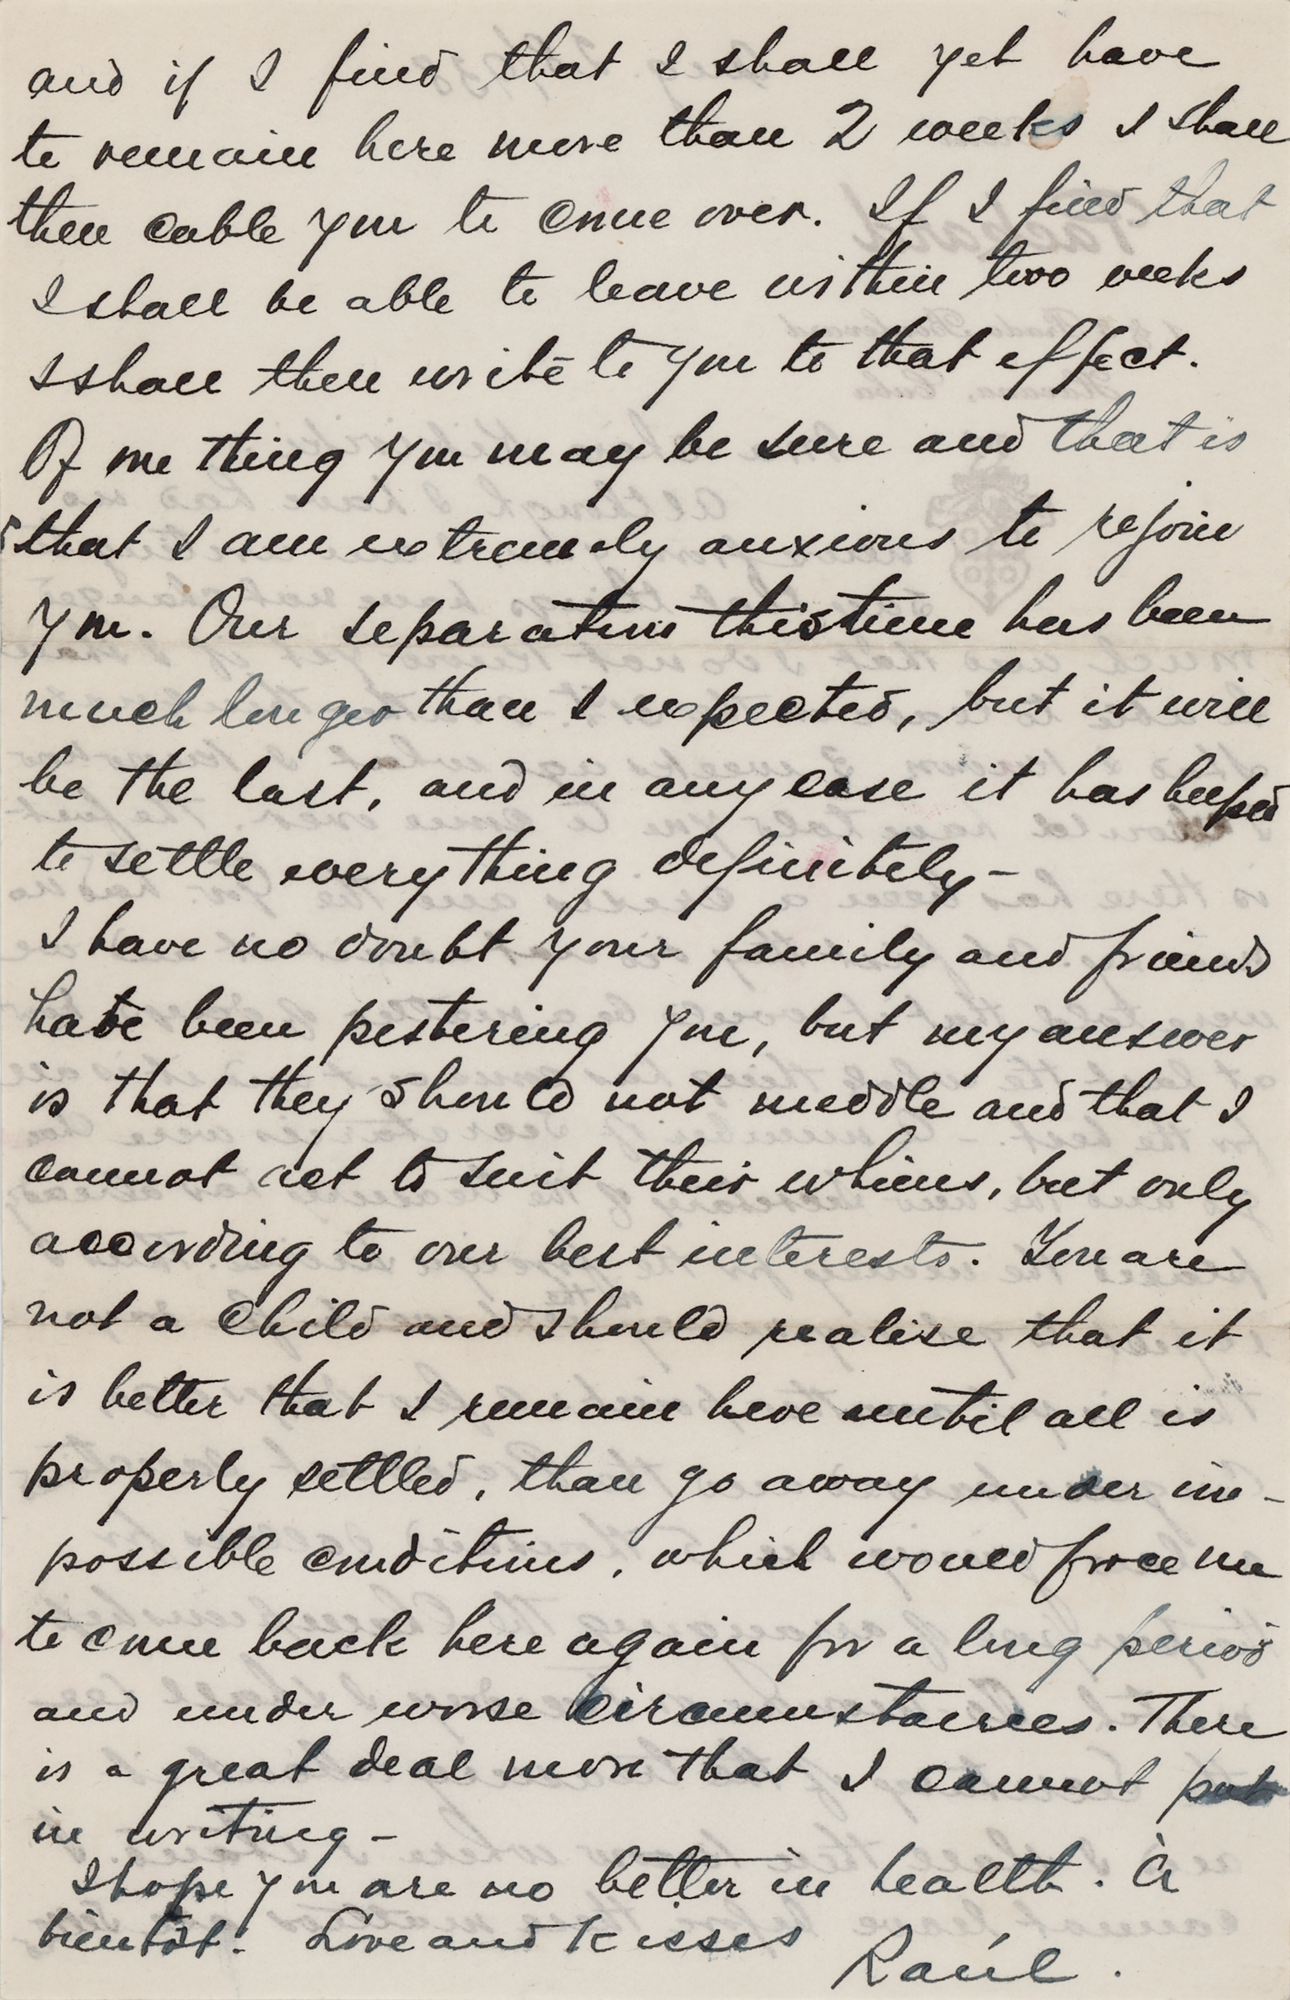 and if I find that I shall yet have
to remain here more than 2 weeks I shall
then cable you to come over. If I find that
I shall be able to leave within two weeks
I shall then write to you to that effect.
Of one thing you may be sure and that is
that I am extremely anxious to rejoin
you. Our separation this time has been
much longer than I expected, but it will
be the last, and in any case it has helped
to settle everything definitely -
I have no doubt your family and friends
have been pestering you, but my answer
is that they should not meddle and that I
cannot act to suit their whims, but only
according to our best interests. You are
not a child and should realise that it
is better that I remain here until all is
properly settled, than go away under im-
possible conditions, which would force me
to come back here again for a long period
and under worse circumstances. There
is a great deal more that I cannot put
in writing -
I hope you are no better in health. À
bientôt. Love and kisses
Raúl.